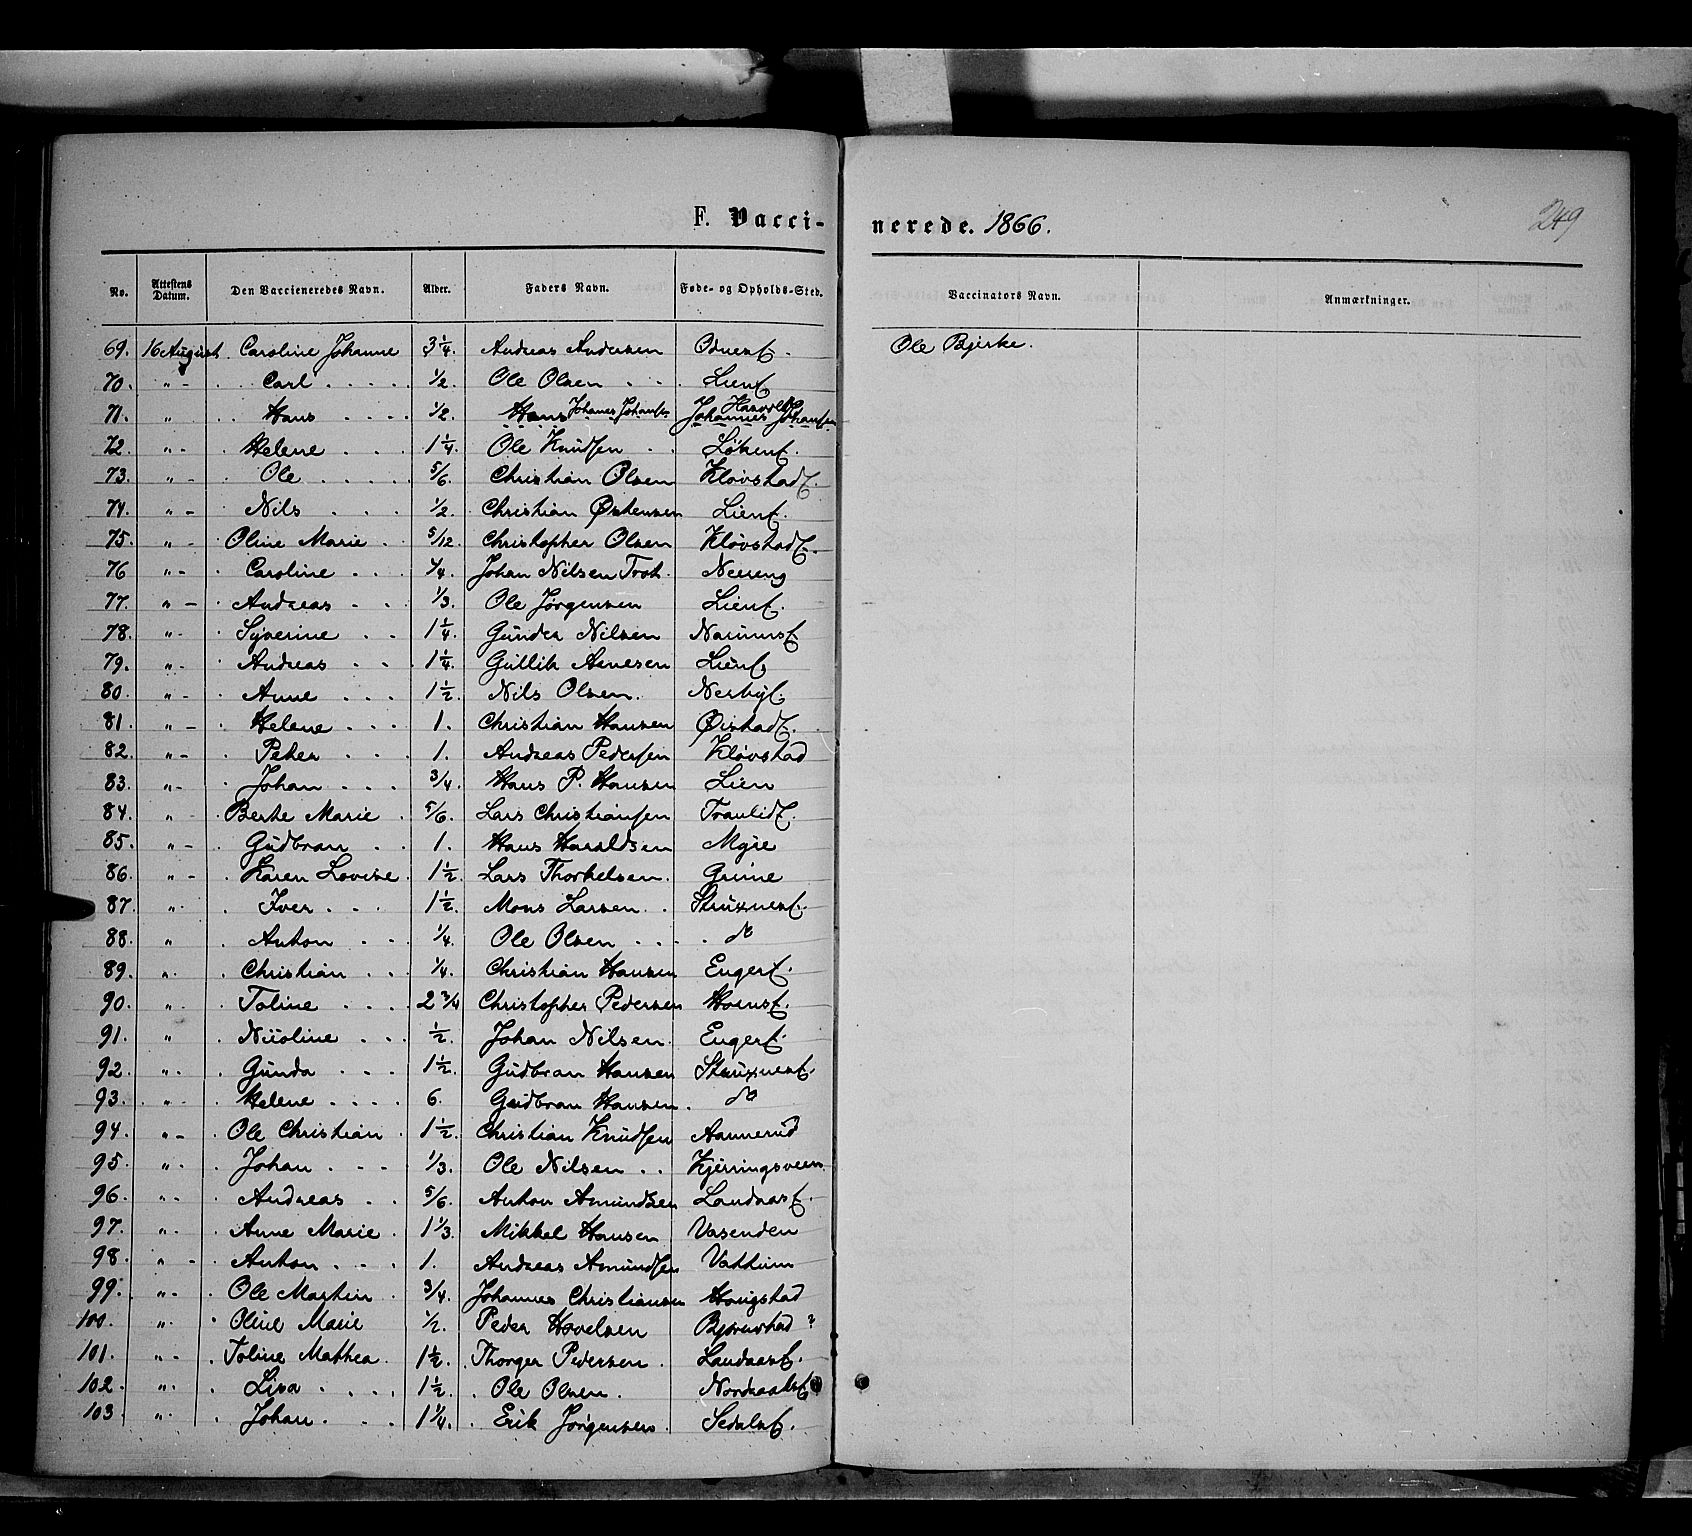 F. Vacci-nerede. 1866. 249
No. Attestens Datum. Den Vaccieneredes Navn. Alder. Faders Navn. Føde- og Opholds-Sted. Vaccinators Navn. Anmærkninger.
69. 16 August Caroline Johanne 3 1/4. Andreas Andersen Odnesf. Ole Bjerke.
70. " - Carl 1/2. Ole Olsen Lienf
71. " Hans 1/2. Hans Johanes Johansen Johannes Johansen
72 " - Helene 1 1/4. Ole Knudsen Løkenf.
73. " - Ole 5/6. Christian Olsen Kløvstadf.
74. " - Nils 1/2. Christian Østensen Lienf.
75. " - Oline Marie 5/12. Christopher Olsen Kløvstadf.
76 " - Caroline 1/4. Johan Nilsen Trot. Nereng
77. " - Andreas 1/3. Ole Jørgensen Lienf.
78. " - Syverine 1 1/4. Gunder Nilsen
79. " - Andreas 1 1/4. Gullik Arnesen Lienf
80. " - Anne 1 1/2. Nils Olsen. Nerbyf.
81. " - Helene 1. Christian Hansen Øistadf.
82. " - Peter 1. Andreas Pedersen Kløvstad
83. " - Johan 3/4. Hans P. Hansen Lien
84. " - Berte Marie 5/6. Lars Christiansen Tranlidf.
85. " - Gudbran 1. Hans Haraldsen Myre
86. " - Karen Lovise 1 1/2. Lars Thorkelsen. Grime
87. " Iver 1 1/2. Mons Larsen Struxnesf.
88. " Anton 1/4. Ole Olsen do
89. " Christian 1/4. Christian Hansen Engerf.
90. " Toline 2 3/4 Christopher Pedersen Hoensf.
91. " Nicoline 1/2. Johan Nilsen. Engerf.
92. " Gunda 1 1/2. Gudbran Hansen Struxnesf.
93. " - Helene 6. Gudbran Hansen. do
94. " - Ole Christian 1 1/2. Christian Knudsen Aannerud
95. " Johan 1/3. Ole Nilsen Kjerringsveen
96. " - Andreas 5/6. Anton Amundsen Landaasf.
97. " - Anne Marie 1 1/3. Mikkel Hansen Vasenden
98. " - Anton 1. Andreas Amundsen Vattum
99. " - Ole Martin 3/4. Johannes Christiansen Hougstad
100. " Oline Marie 1/2. Peder Hovelsen Bjørnstad ?
101. " - Toline Mathea 1 1/2. Thorger Pedersen Landaasf.
102. " Lisa 1 1/2. Ole Olsen. Nordraakf
103. " Johan 1 1/4. Erik Jørgensen Sedalsf.